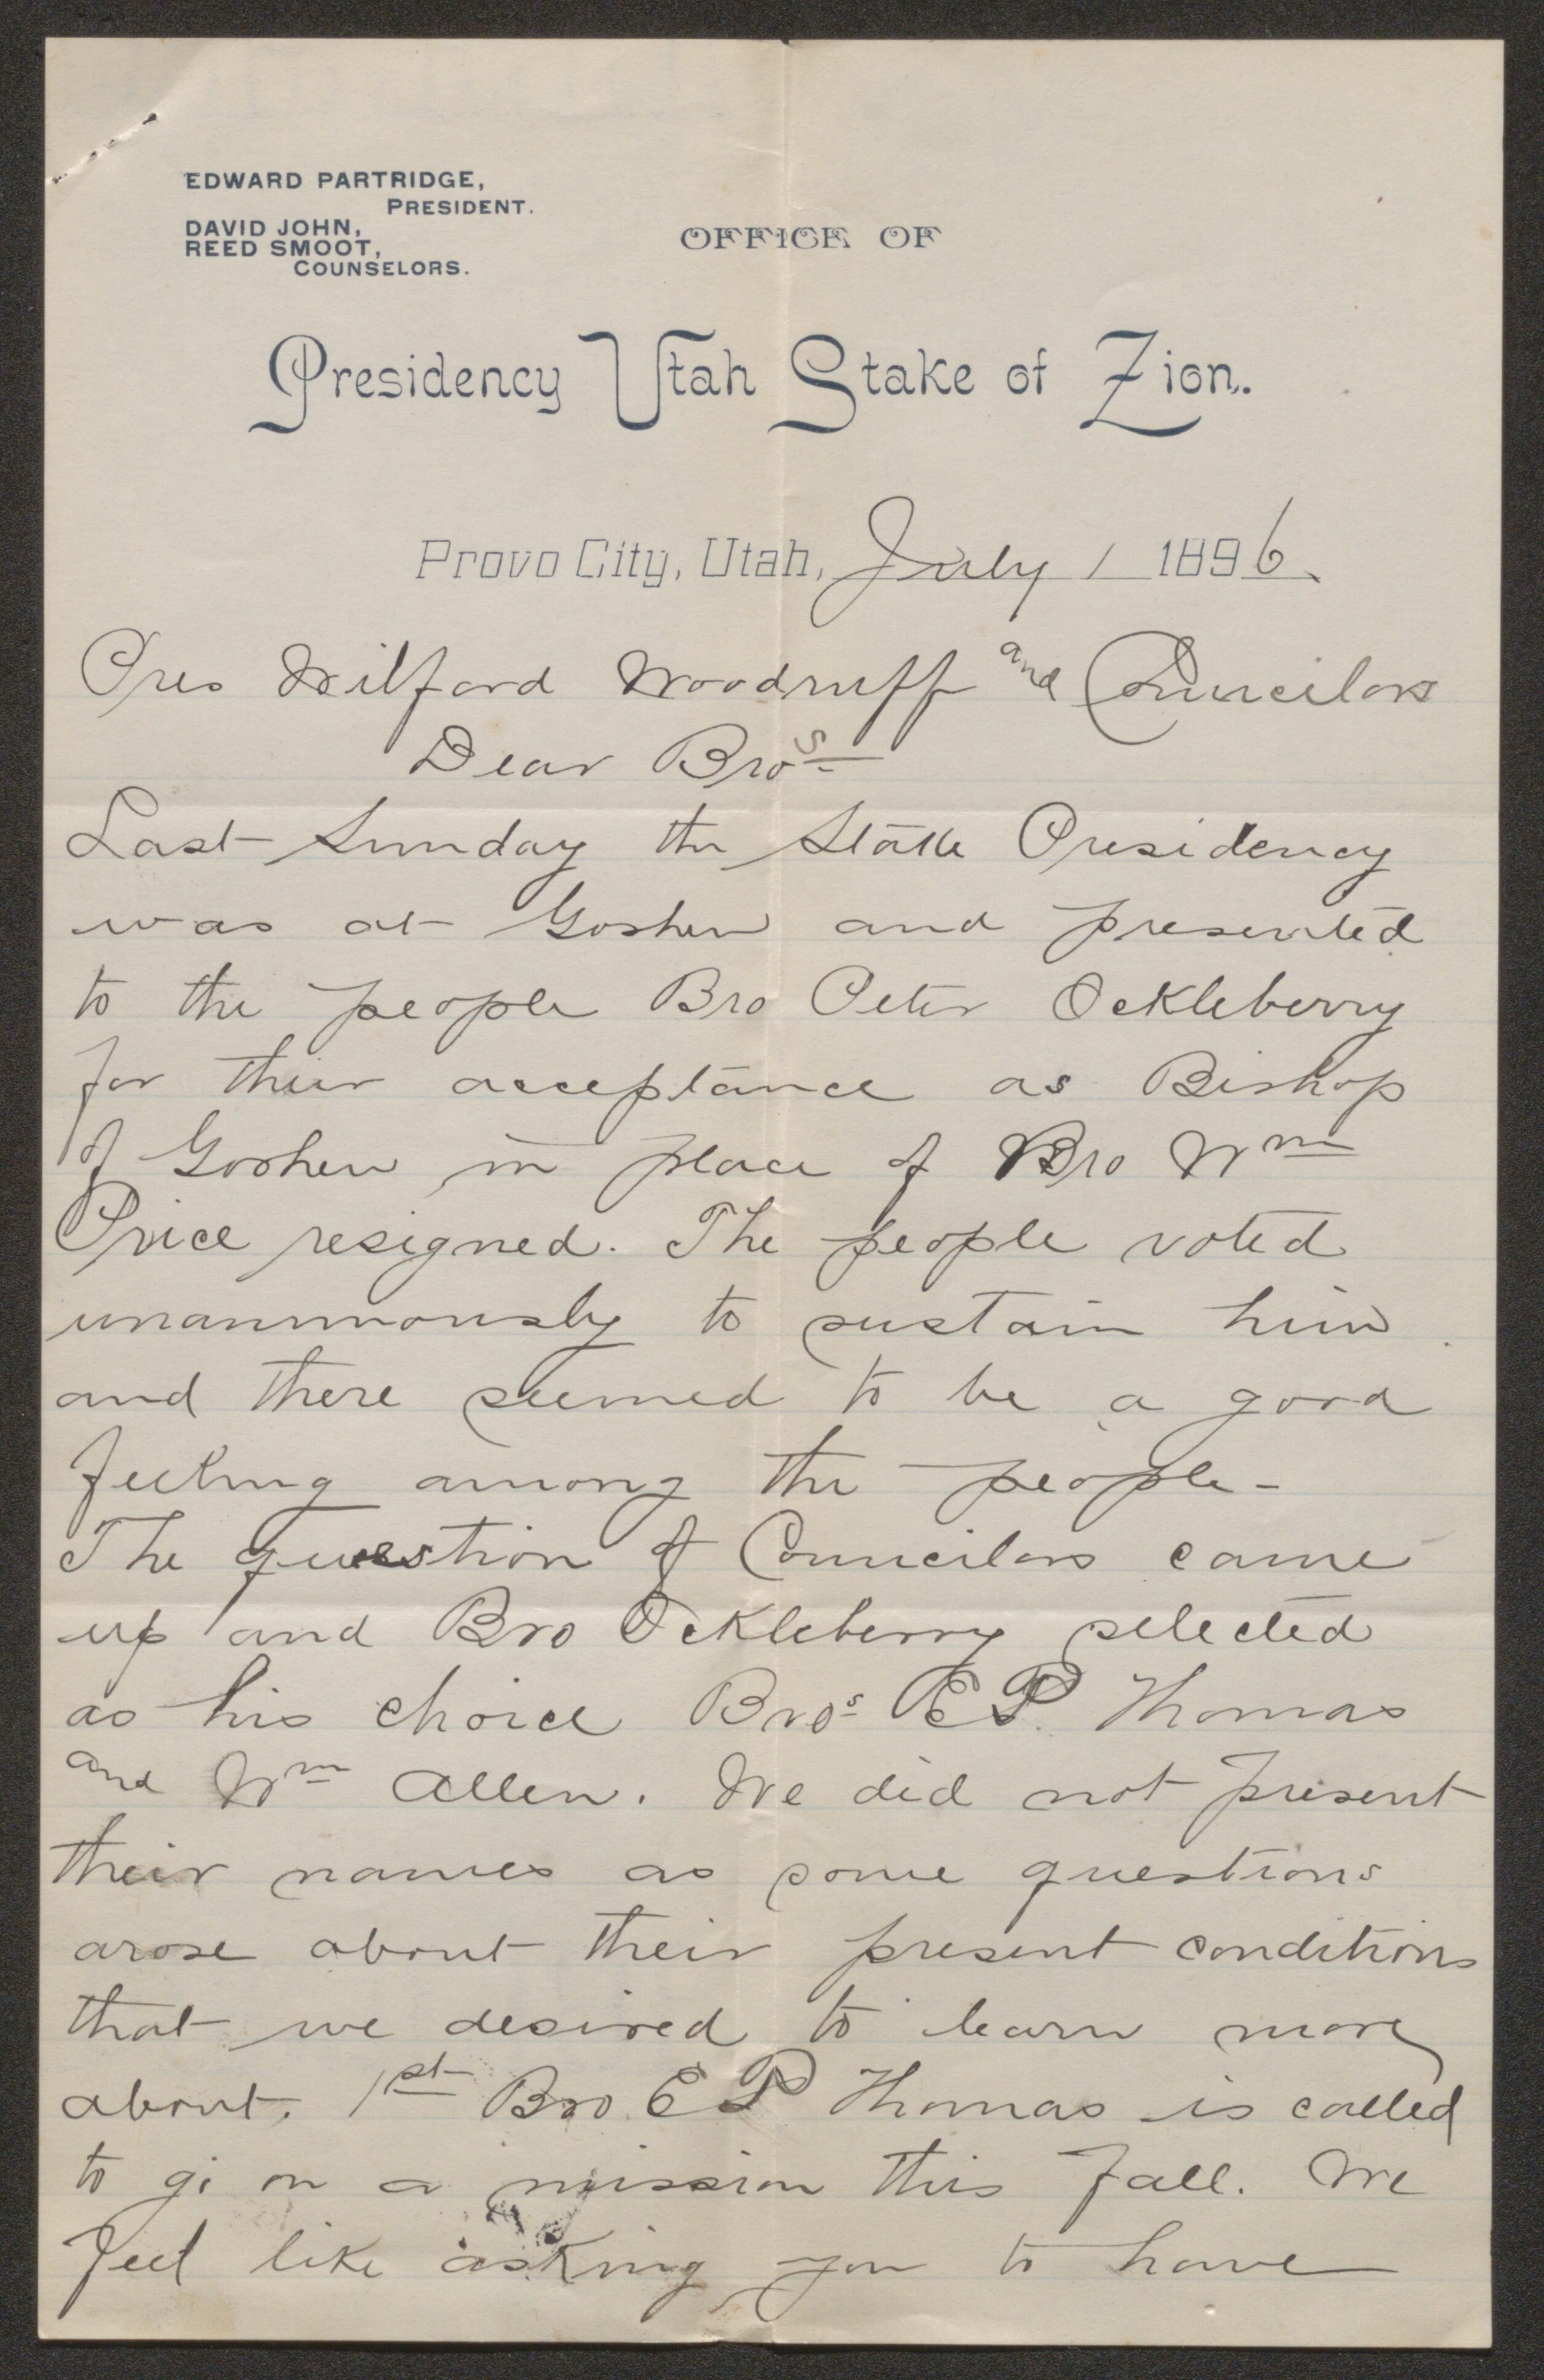 EDWARD PARTRIDGE,
PRESIDENT.
DAVID JOHN,
REED SMOOT,
COUNSELORS.
OFFICE OF
Presidency Utah Stake of Zion.
Provo City, Utah, July 1 1896
Pres Wilford Woodruff and Councilors
Dear Bros
Last Sunday the Stake Presidency
was at Goshen and presented
to the people Bro Peter Ockleberry
for their acceptance as Bishop
of Goshen in place of Bro Wm
Price resigned. The people voted
unanimously to sustain him
and there seemed to be a good
feeling among the people -
The question of Councilors came
up and Bro Ockleberry selected
as his choice Bros E P. Thomas
and Wm Allen. We did not present
their names as some questions
arose about their present conditions
that we desired to learn more
about. 1st Bro E P Thomas is called
to go on a mission this fall. We
feel like asking you to have